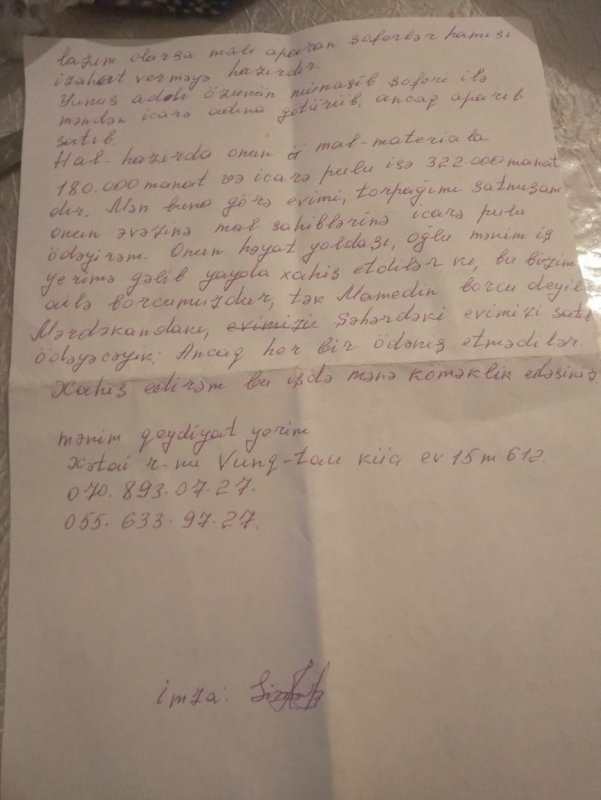 lazım olarsa malı aparan şoferlər hamısı
izahat verməyə hazırdır.
Yunus adlı özünün münasib şoferi ilə
məndən icarə adına götürüb, ancaq aparıb
satıb.
Hal-hazırda onun mal-materiala
180.000 manat və icarə pulu isə 322.000 manat
dır. Mən buna görə evimi, torpağımı satmışam
onun əvəzinə mal sahiblərinə icarə pulu
ödəyirəm. Onun həyat yoldaşı, oğlu mənim iş
yerimə gəlib xahiş etdilər ki, bu bizim
ailə borcumuzdur, tək Mamedin borcu deyil
Mərdəkandakı, evimizi Şəhərdəki evimizi satıb
ödəyəcəyik. Ancaq heç bir ödəniş etmədilər.
Xahiş edirəm bu işdə mənə köməklik edəsiniz.
mənim qeydiyat yerim
Xətai r-nu Vung-tau küç ev 15 m 612.
070. 893. 07. 27.
055. 633. 97. 27.
imza: